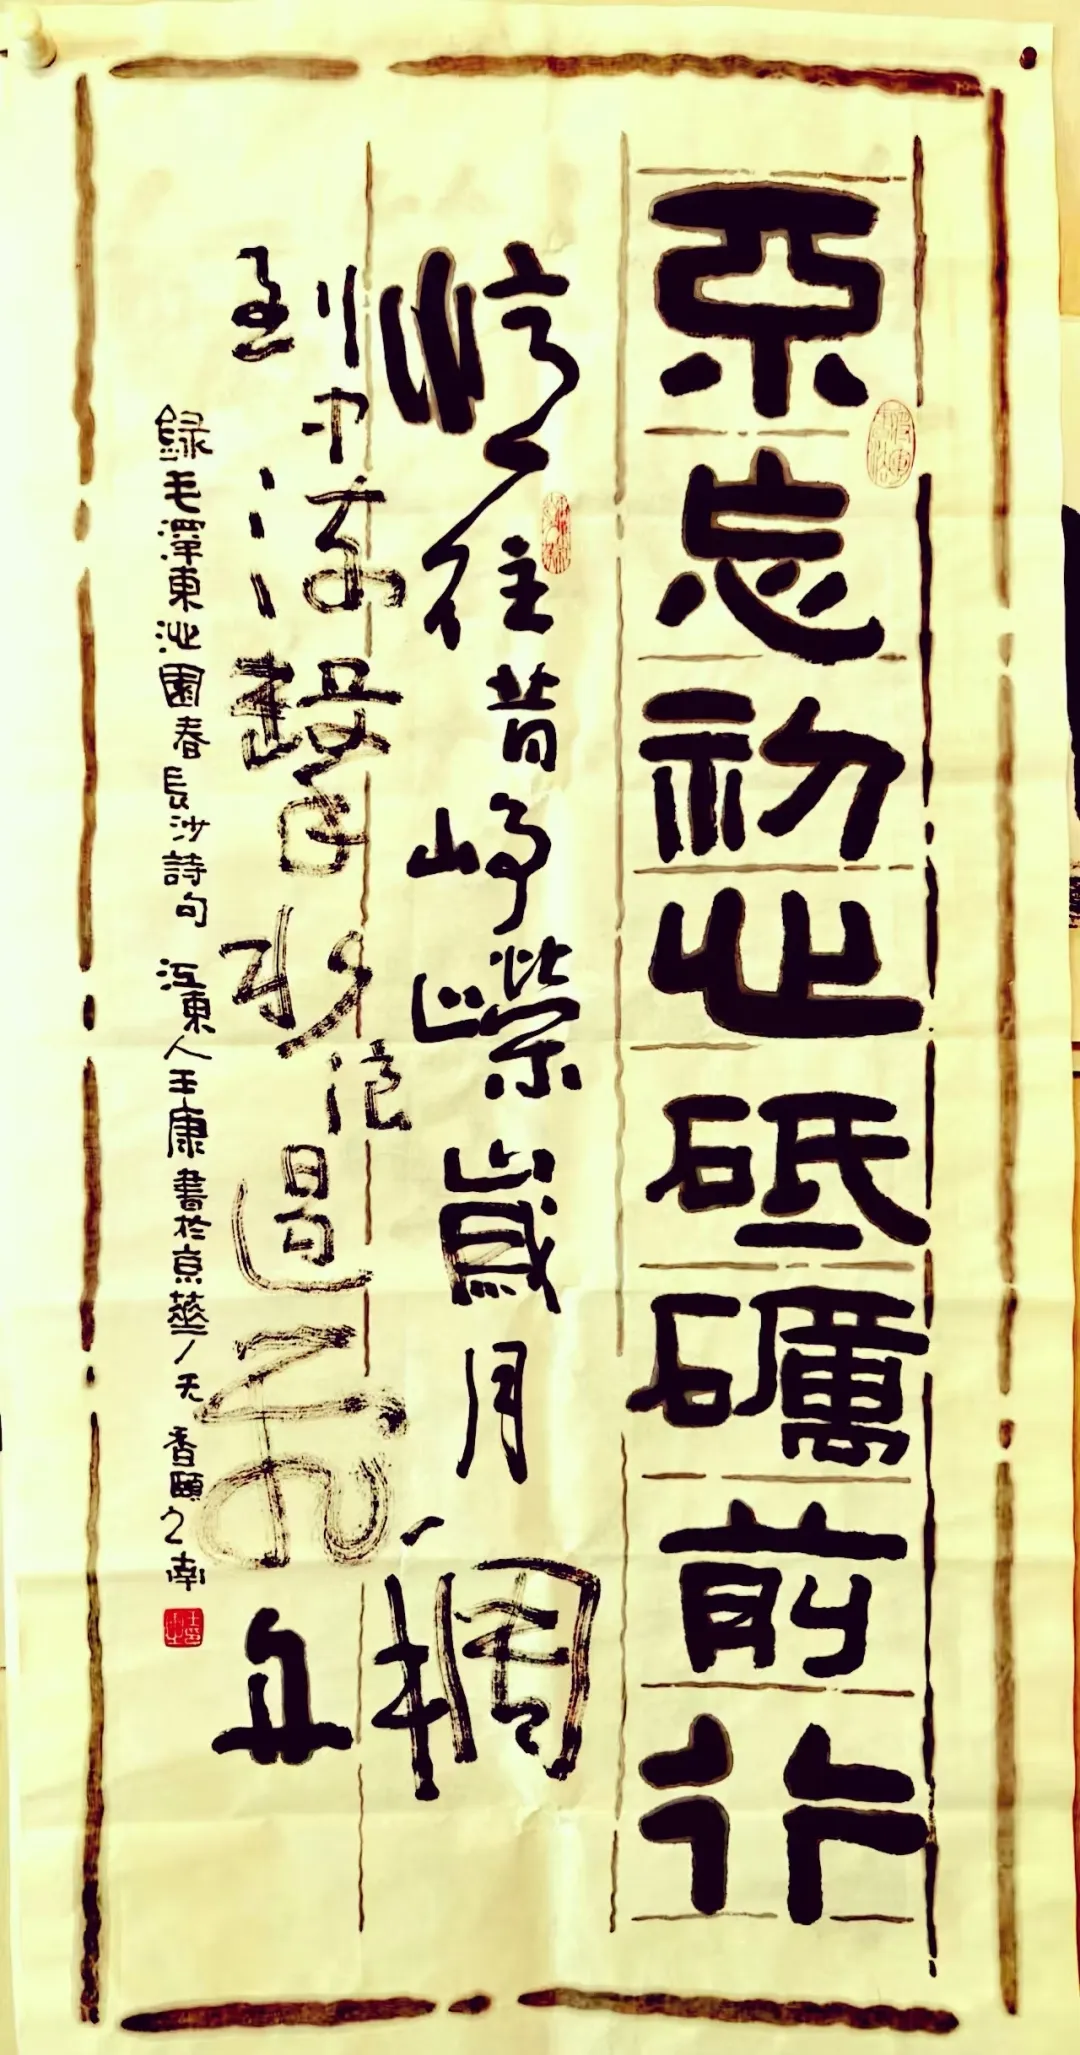 不忘初心砥礪前行
憶往昔崢嶸歲月稠
到中流擊水浪遏飛舟
録毛澤東沁園春長沙詩句 江東人王康書於京華天香頤之南